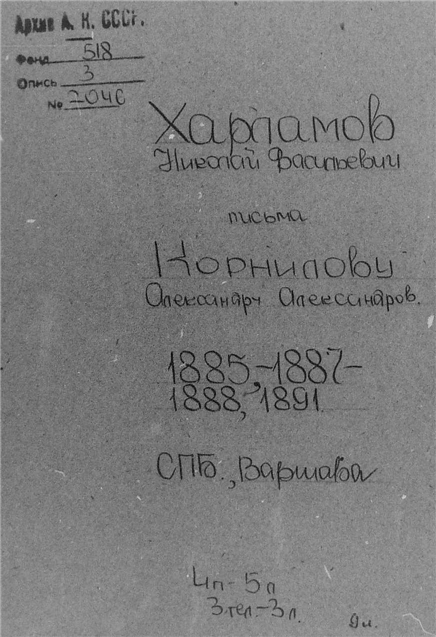 Архив А. Н. СССР.
Фонд 518
Опись 3
№ 2046
Харламов
Николай Васильевич
письма
Корнилову
Александру Александров.
1885,-1887-
1888, 1891
СПБ., Варшава
4п- 5л
3тел-3л.
9л.